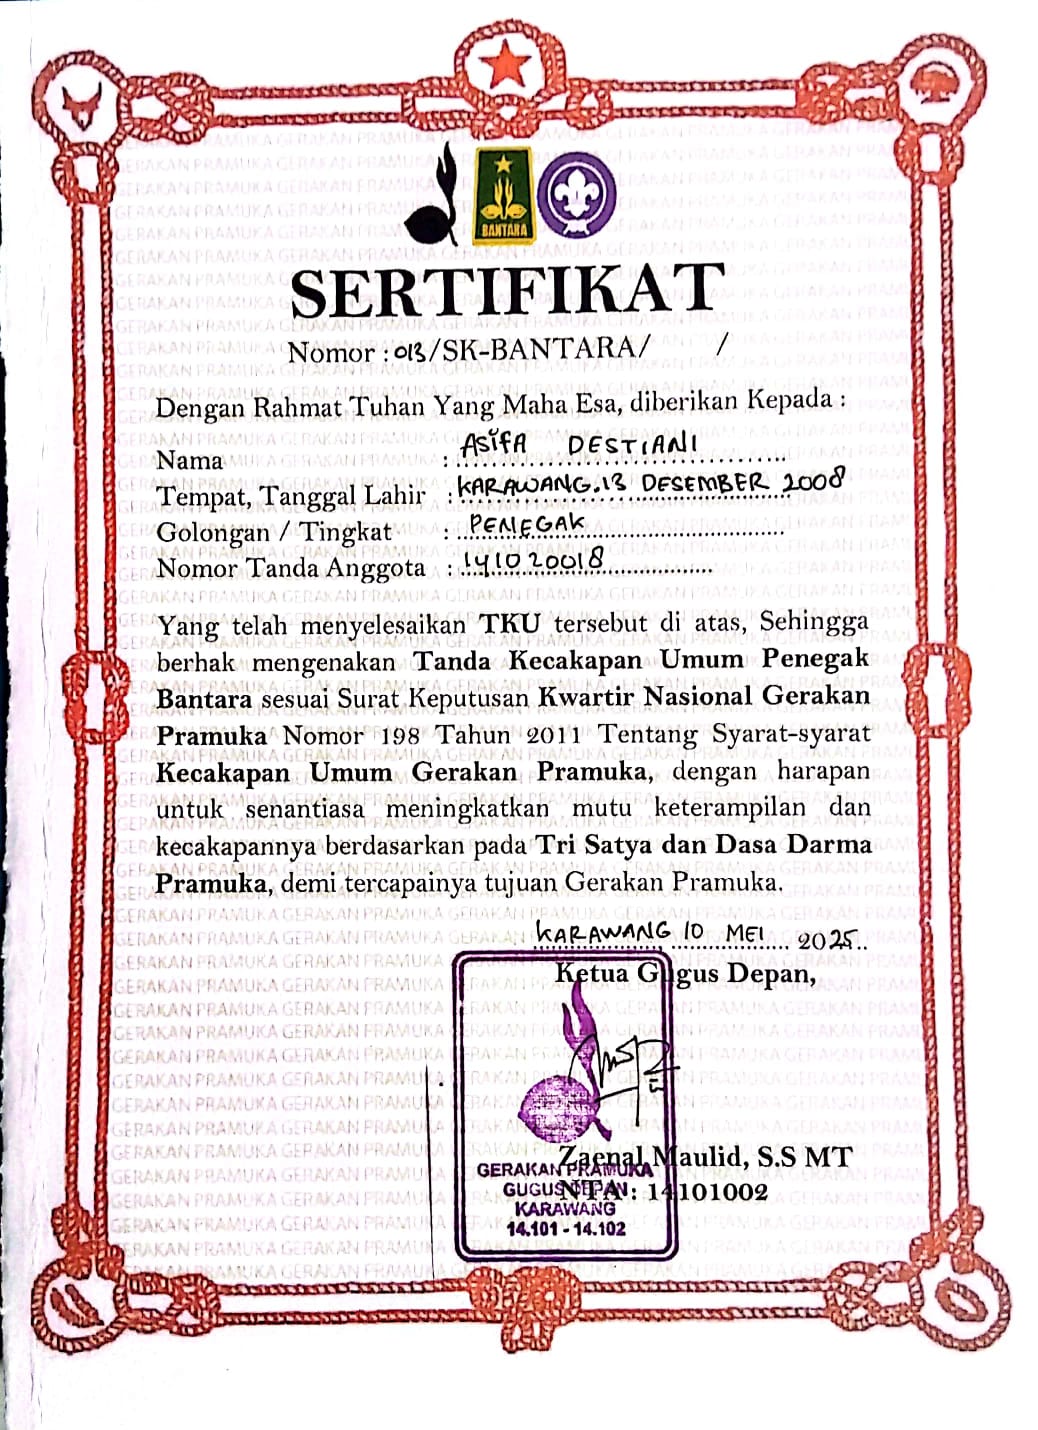 BANTARA
SERTIFIKAT
Nomor : 013/SK-BANTARA/ /
Dengan Rahmat Tuhan Yang Maha Esa, diberikan Kepada :
Nama : ASIFA DESTIANI
Tempat, Tanggal Lahir : KARAWANG.13 DESEMBER 2008
Golongan / Tingkat : PENEGAK
Nomor Tanda Anggota : 14.10.20018
Yang telah menyelesaikan TKU tersebut di atas, Sehingga
berhak mengenakan Tanda Kecakapan Umum Penegak
Bantara sesuai Surat Keputusan Kwartir Nasional Gerakan
Pramuka Nomor 198 Tahun 2011 Tentang Syarat-syarat
Kecakapan Umum Gerakan Pramuka, dengan harapan
untuk senantiasa meningkatkan mutu keterampilan dan
kecakapannya berdasarkan pada Tri Satya dan Dasa Darma
Pramuka, demi tercapainya tujuan Gerakan Pramuka.
KARAWANG 10 MEI 2025..
Ketua Gugus Depan,
Zaenal Maulid, S.S MT
NTA : 14101002
GERAKAN PRAMUKA
GUGUS DEPAN
KARAWANG
14.101 - 14.102